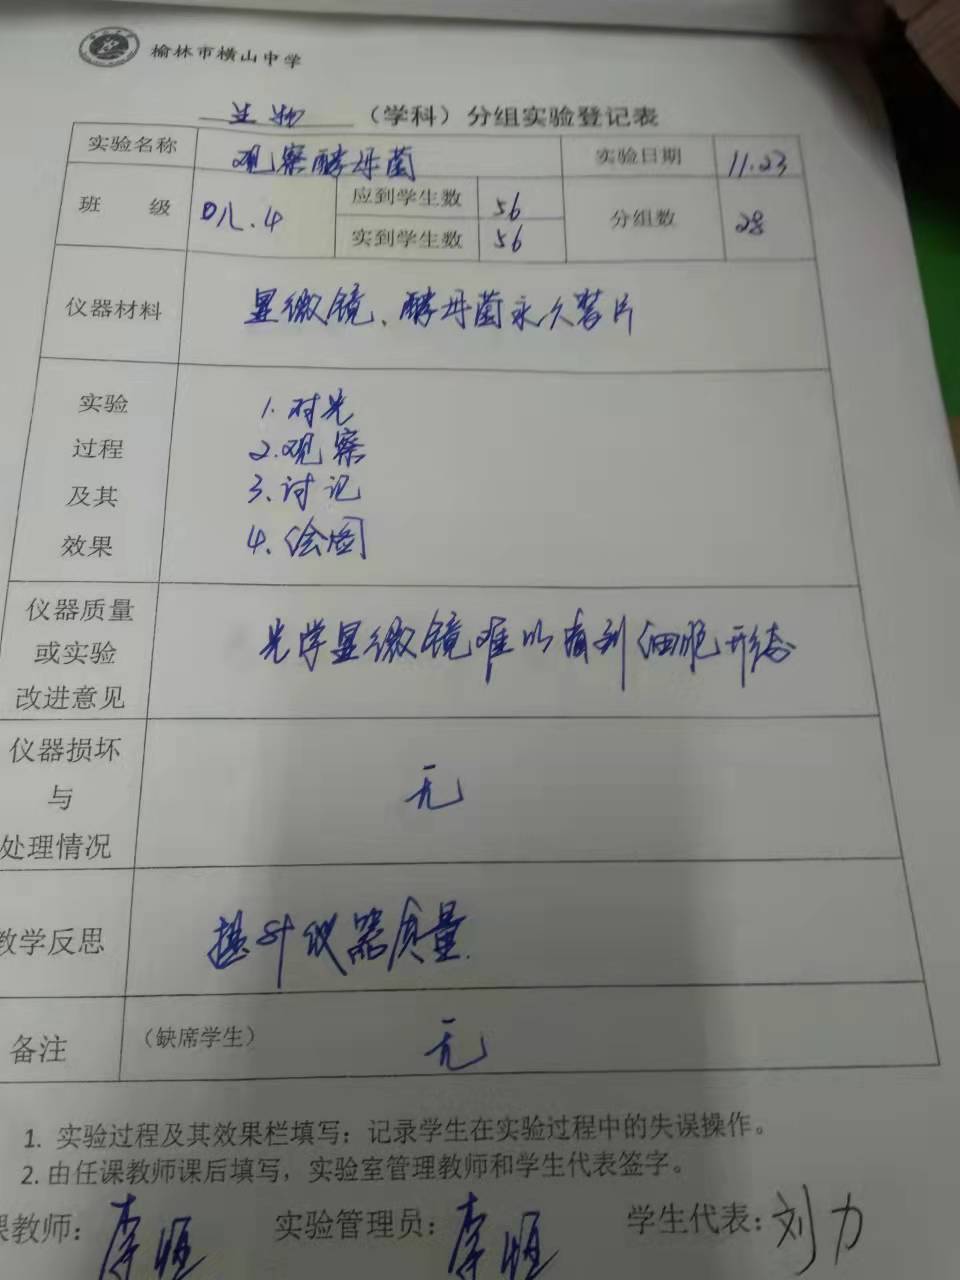 榆林市横山中学
生物（学科）分组实验登记表
实验名称 观察酵母菌 实验日期 11.23
班 级 八.4 应到学生数 56 分组数 28
实到学生数 56
仪器材料 显微镜、酵母菌永久装片
实验 1.对光
过程 2.观察
及其 3.讨论
效果 4.绘图
仪器质量
或实验 光学显微镜难以看到细胞形态
改进意见
仪器损坏
与 无
处理情况
教学反思 提升仪器质量.
备注 （缺席学生） 无
1. 实验过程及其效果栏填写：记录学生在实验过程中的失误操作。
2. 由任课教师课后填写，实验室管理教师和学生代表签字。
课教师：李恒 实验管理员：李恒 学生代表：刘力